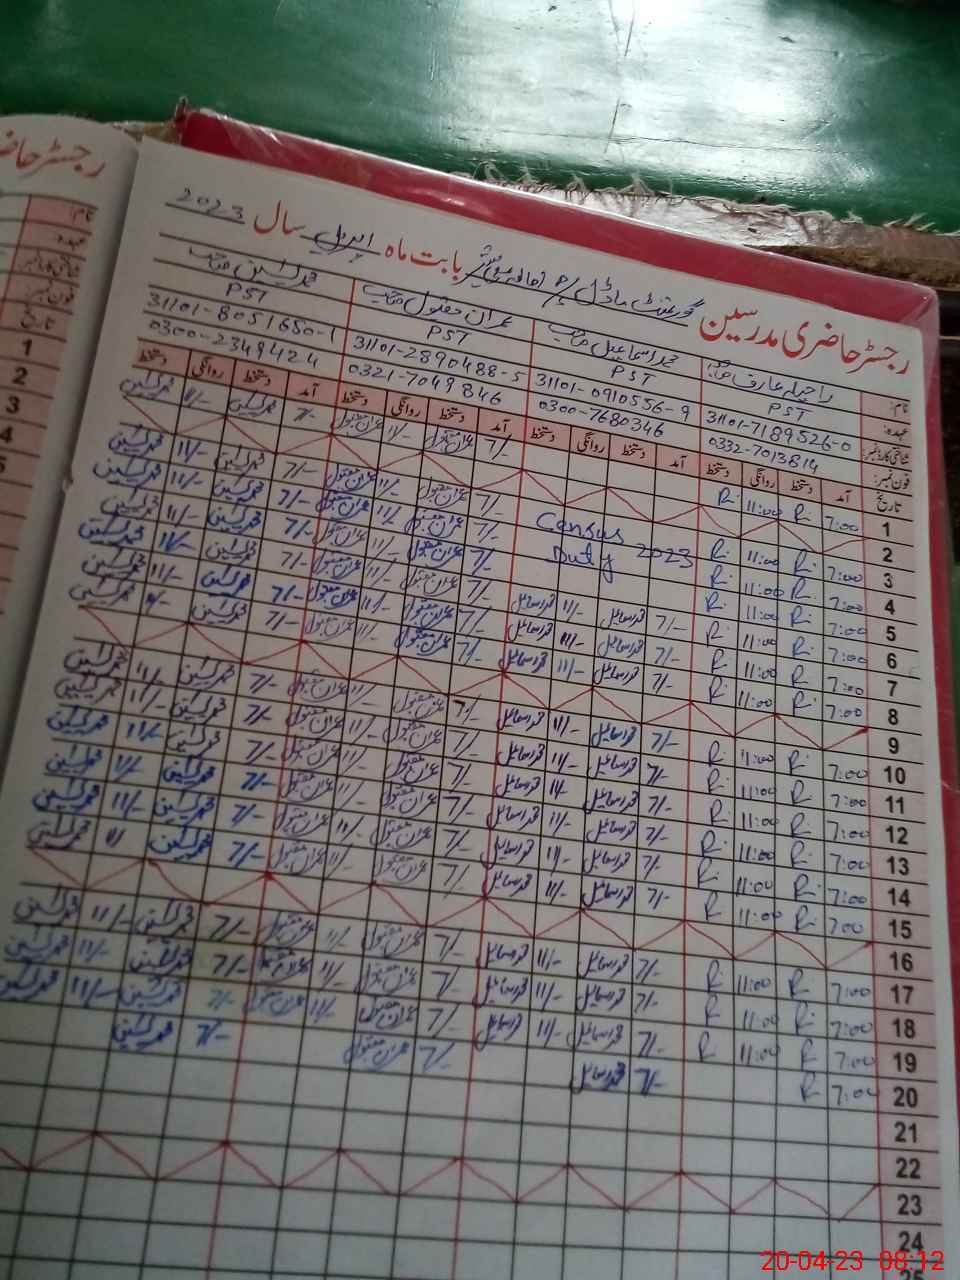 رجسٹر حاضری مدرسین گورنمنٹ ماڈل P/S بابت ماہ اپریل سال 2023
نام: راحیلہ عارف صاحبہ محمد اسماعیل صاحب عمران مقبول صاحب محمد یٰسین صاحب
عہدہ: PST PST PST PST
شناختی کارڈ نمبر: 31101-7189526-0 31101-0910556-9 31101-2890488-5 31101-8051650-1
فون نمبر: 0332-7013814 0300-7680346 0321-7049846 0300-2349424
تاریخ آمد دستخط روانگی دستخط آمد دستخط روانگی دستخط آمد دستخط روانگی دستخط آمد دستخط روانگی دستخط
1 7:00 R. 11:00 R. 7/- عمران مقبول 11/- عمران مقبول 7/- محمد یٰسین 11/- محمد یٰسین
2
3 7:00 R. 11:00 R. Census 7/- عمران مقبول 11/- عمران مقبول 7/- محمد یٰسین 11/- محمد یٰسین
4 7:00 R. 11:00 R. Duty 2023 7/- عمران مقبول 11/- عمران مقبول 7/- محمد یٰسین 11/- محمد یٰسین
5 7:00 R. 11:00 R. 7/- عمران مقبول 11/- عمران مقبول 7/- محمد یٰسین 11/- محمد یٰسین
6 7:00 R. 11:00 R. 7/- محمد اسماعیل 11/- محمد اسماعیل 7/- عمران مقبول 11/- عمران مقبول 7/- محمد یٰسین 11/- محمد یٰسین
7 7:00 R. 11:00 R. 7/- محمد اسماعیل 11/- محمد اسماعیل 7/- عمران مقبول 11/- عمران مقبول 7/- محمد یٰسین 11/- محمد یٰسین
8 7:00 R. 11:00 R. 7/- محمد اسماعیل 11/- محمد اسماعیل 7/- عمران مقبول 11/- عمران مقبول 7/- محمد یٰسین 11/- محمد یٰسین
9
10 7:00 R. 11:00 R. 7/- محمد اسماعیل 11/- محمد اسماعیل 7/- عمران مقبول 11/- عمران مقبول 7/- محمد یٰسین 11/- محمد یٰسین
11 7:00 R. 11:00 R. 7/- محمد اسماعیل 11/- محمد اسماعیل 7/- عمران مقبول 11/- عمران مقبول 7/- محمد یٰسین 11/- محمد یٰسین
12 7:00 R. 11:00 R. 7/- محمد اسماعیل 11/- محمد اسماعیل 7/- عمران مقبول 11/- عمران مقبول 7/- محمد یٰسین 11/- محمد یٰسین
13 7:00 R. 11:00 R. 7/- محمد اسماعیل 11/- محمد اسماعیل 7/- عمران مقبول 11/- عمران مقبول 7/- محمد یٰسین 11/- محمد یٰسین
14 7:00 R. 11:00 R. 7/- محمد اسماعیل 11/- محمد اسماعیل 7/- عمران مقبول 11/- عمران مقبول 7/- محمد یٰسین 11/- محمد یٰسین
15 7:00 R. 11:00 R. 7/- محمد اسماعیل 11/- محمد اسماعیل 7/- عمران مقبول 11/- عمران مقبول 7/- محمد یٰسین 11/ محمد یٰسین
16
17 7:00 R. 11:00 R. 7/- محمد اسماعیل 11/- محمد اسماعیل 7/- عمران مقبول 11/- عمران مقبول 7/- محمد یٰسین 11/- محمد یٰسین
18 7:00 R. 11:00 R. 7/- محمد اسماعیل 11/- محمد اسماعیل 7/- عمران مقبول 11/- عمران مقبول 7/- محمد یٰسین 11/- محمد یٰسین
19 7:00 R. 11:00 R. 7/- محمد اسماعیل 11/- محمد اسماعیل 7/- عمران مقبول 11/- عمران مقبول 7/- محمد یٰسین 11/- محمد یٰسین
20 7:00 R. 7/- محمد اسماعیل 7/- عمران مقبول 7/- محمد یٰسین
21
22
23
24
رجسٹر حاضری
نام:
عہدہ:
شناختی کارڈ نمبر
فون نمبر:
تاریخ
1
2
3
4
5
20-04-23 08:12